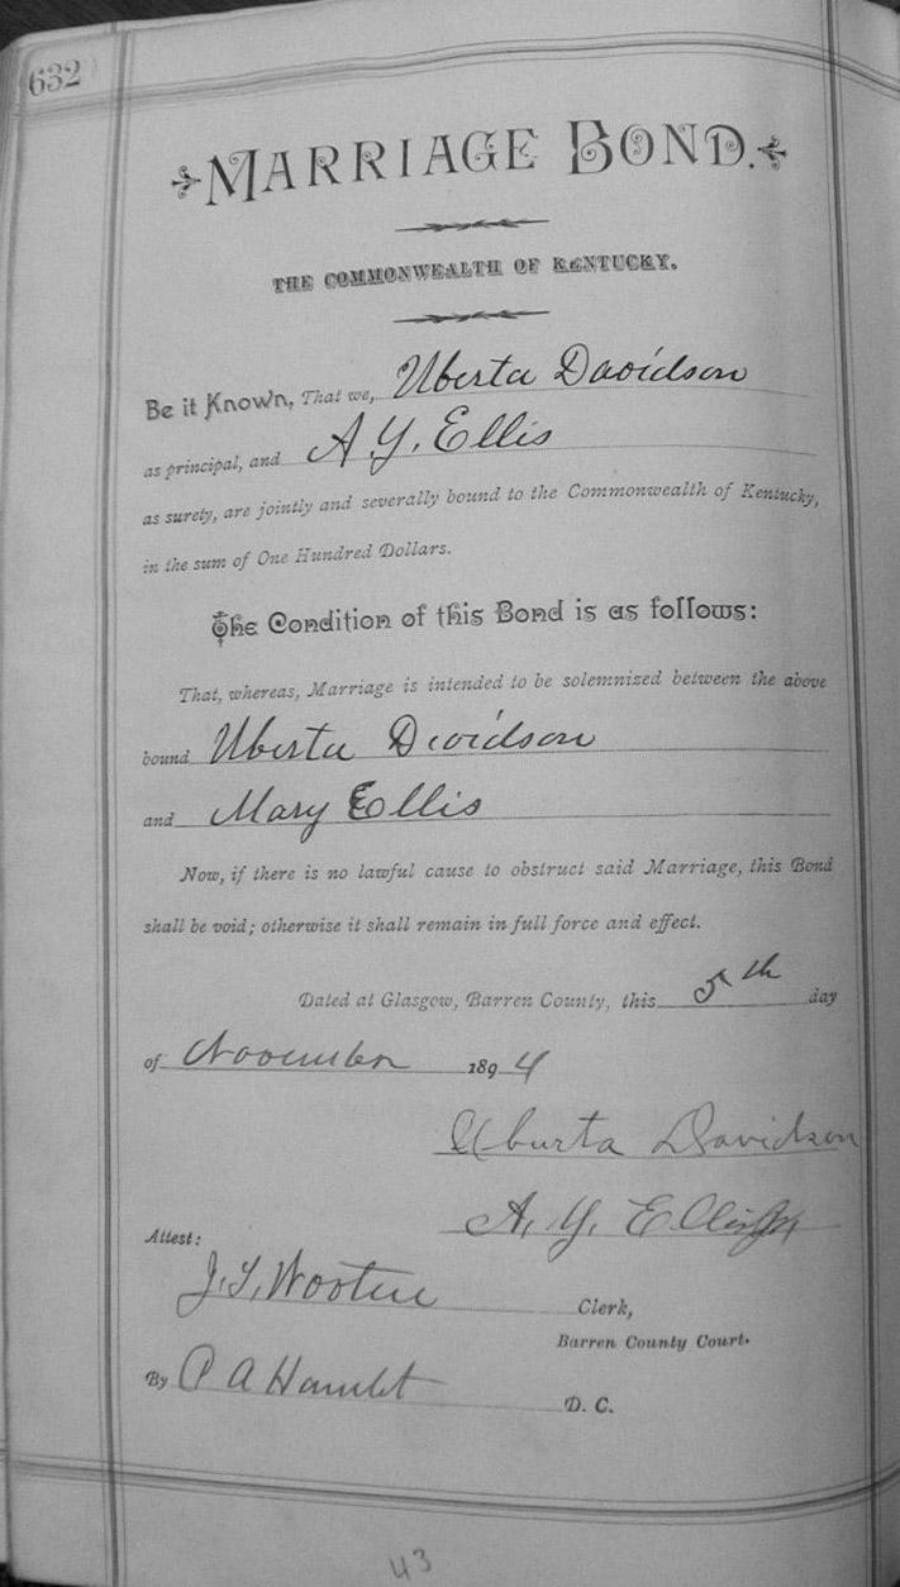 632
MARRIAGE BOND.
THE COMMONWEALTH OF KENTUCKY.
Be it Known, That we, Uberta Davidson
as principal, and A. Y. Ellis
as surety, are jointly and severally bound to the Commonwealth of Kentucky,
in the sum of One Hundred Dollars.
The Condition of this Bond is as follows:
That, whereas, Marriage is intended to be solemnized between the above
bound Uberta Davidson
and Mary Ellis
Now, if there is no lawful cause to obstruct said Marriage, this Bond
shall be void; otherwise it shall remain in full force and effect.
Dated at Glasgow, Barren County, this 5th day
of November 1894
Uburta Davidson
A. Y. Ellis
Attest:
J. S. Wooten Clerk,
Barren County Court.
By P A Hamlet D. C.
43